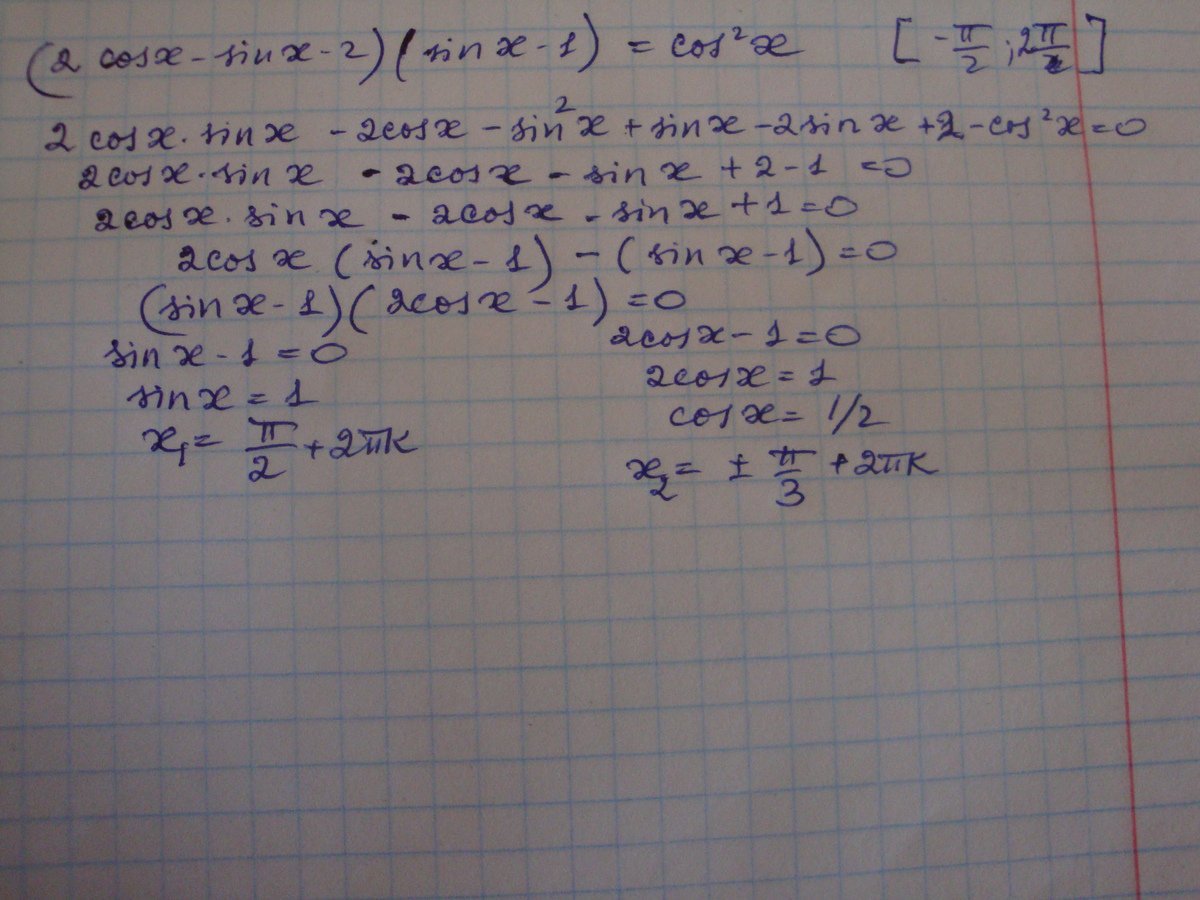 (2 cosx - sinx - 2)(sin x - 1) = cos²x [-π/2; 2π]
2 cosx · sinx - 2cosx - sin²x + sinx - 2sinx + 2 - cos²x = 0
2cosx · sinx - 2cosx - sinx + 2 - 1 = 0
2cosx · sinx - 2cosx - sinx + 1 = 0
2cosx (sinx - 1) - (sinx - 1) = 0
(sinx - 1)(2cosx - 1) = 0
sinx - 1 = 0
sinx = 1
x₁ = π/2 + 2πk
2cosx - 1 = 0
2cosx = 1
cosx = 1/2
x₂ = ± π/3 + 2πk